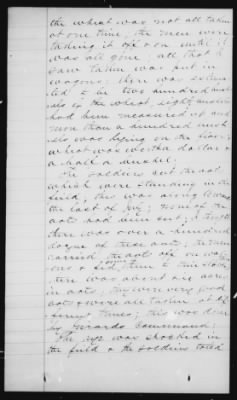 the wheat was not all taken
at one time, the men were
taking it off & on until it
was all gone, all that I
saw taken was put in
wagons; there was estima-
ted to be two hundred bush
els of the wheat, eighty bushels
had been measured up and
more than a hundred bush
els was lying on the floor;
wheat was worth a dollar &
a half a bushel.
The soldiers cut the oats
which were standing in the
field, this was along towards
the last of July; none of the
oats had been cut,
there was over a hundred
dozen of these oats; the men
carried the oats off on wag-
ons & fed them to their stock
there was about six acres
in oats; they were very good
oats & were all taken at dif
ferent times; this was done
by Command;
The rye was shocked in
the field & the soldiers toted